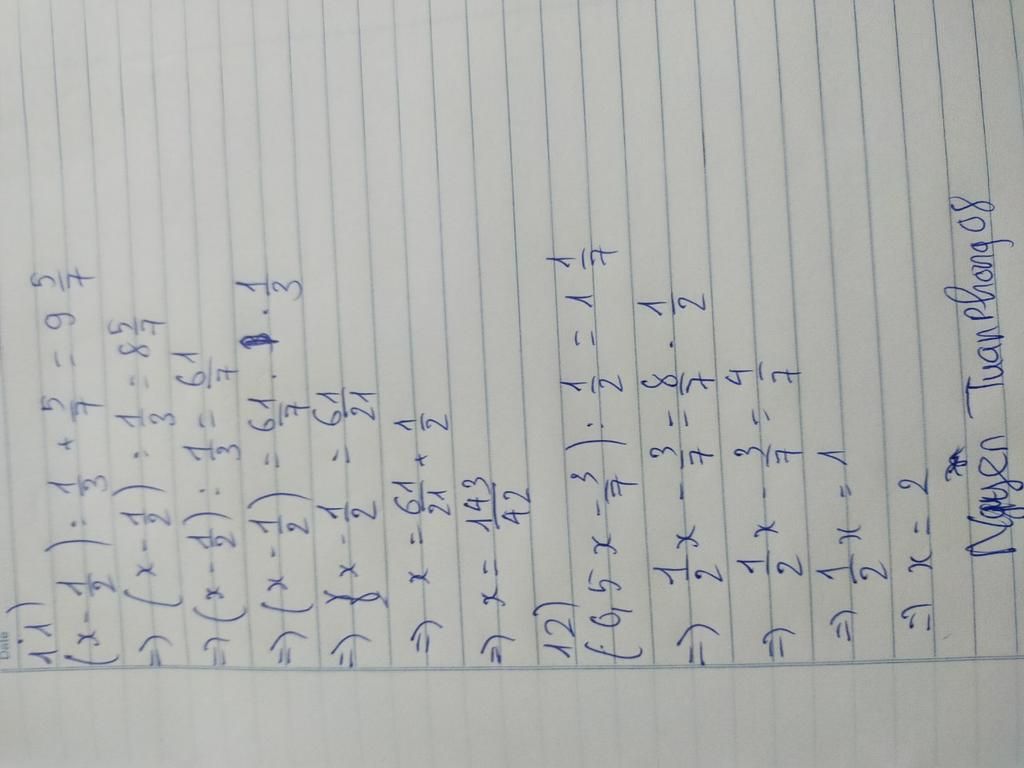 Date
11)
(x - 1/2) : 1/3 + 5/7 = 9 5/7
=> (x - 1/2) : 1/3 = 8 5/7
=> (x - 1/2) : 1/3 = 61/7
=> (x - 1/2) = 61/7 . 1/3
=> x - 1/2 = 61/21
=> x = 61/21 + 1/2
=> x = 143/42
12)
(0,5 x - 3/7) : 1/2 = 1 1/7
=> 1/2 x - 3/7 = 8/7 . 1/2
=> 1/2 x - 3/7 = 4/7
=> 1/2 x = 1
=> x = 2
Tuan Phong 08